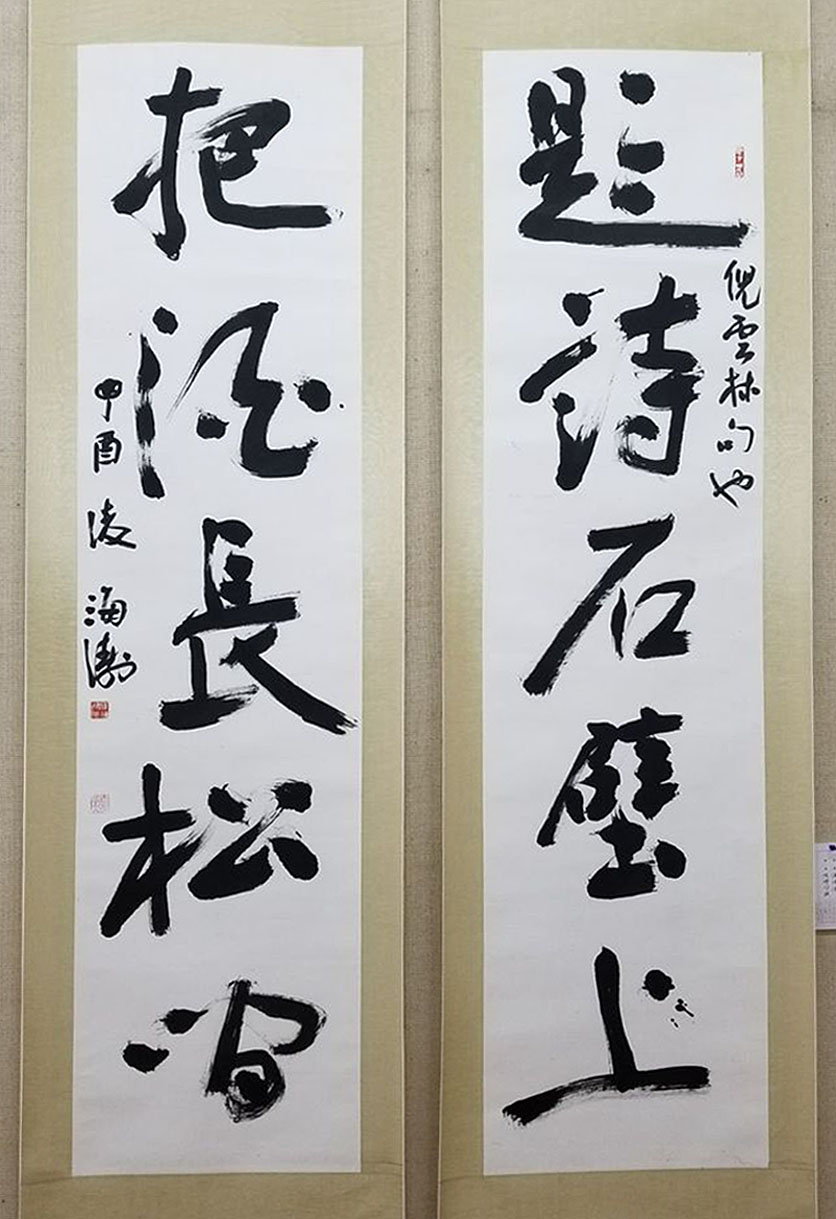 題詩石壁上
倪雲林句也
把酒長松間
酉 凌 海